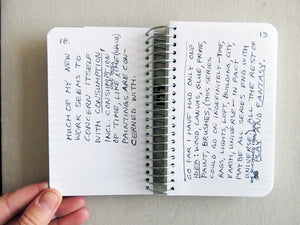 18.
MUCH OF MY NEW
WORK SEEMS TO
CONCERN ITSELF
WITH CONSUMPTION,
INCL. CONSUMPTION
OF TIME, LIKE THE
PAINTINGS ARE CON-
CERNED WITH.
19
SO FAR I HAVE HAD ONLY ONE
WOOD, CANVAS, GLUE, FRAME,
PAINT, BRUSHES, (THIS SERIES
COULD GO ON INFINITELY—TIME,
RAGS, LIGHTS, LOFT, BUILDING, CITY,
EARTH, UNIVERSE — IN FACT
MAYBE ALL SERIES END WITH
UNIVERSE) ALL THE REST OF
PLAY AND FANTASY.